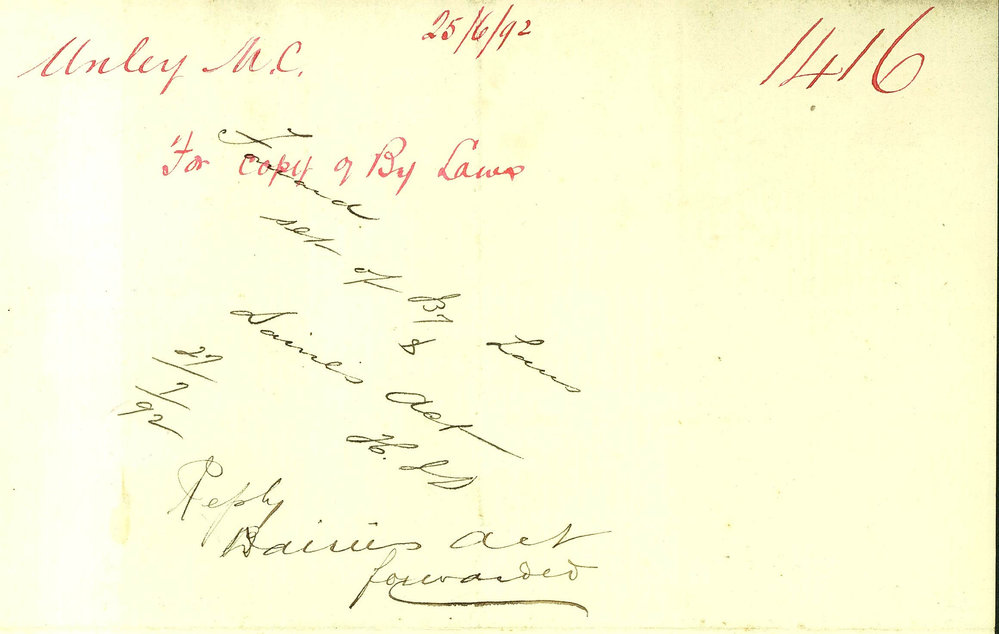 25/6/92
Unley M.C.
1416
For copy of By Laws
Forward
set of By Laws
&
Dairies Act
H. D
27/7/92
Reply
Dairies Act
forwarded